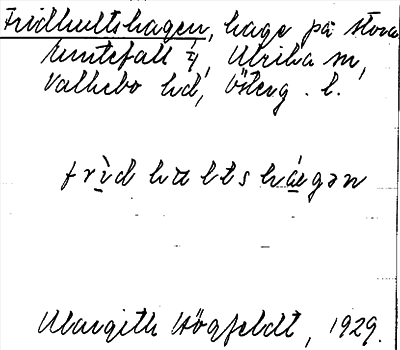 Fridhultshagen, hage på stora
Huntefall 4, Ulrika sn,
Valkebo hd, Österg. l.
frìd hults hágən
Margith Högfeldt, 1929.